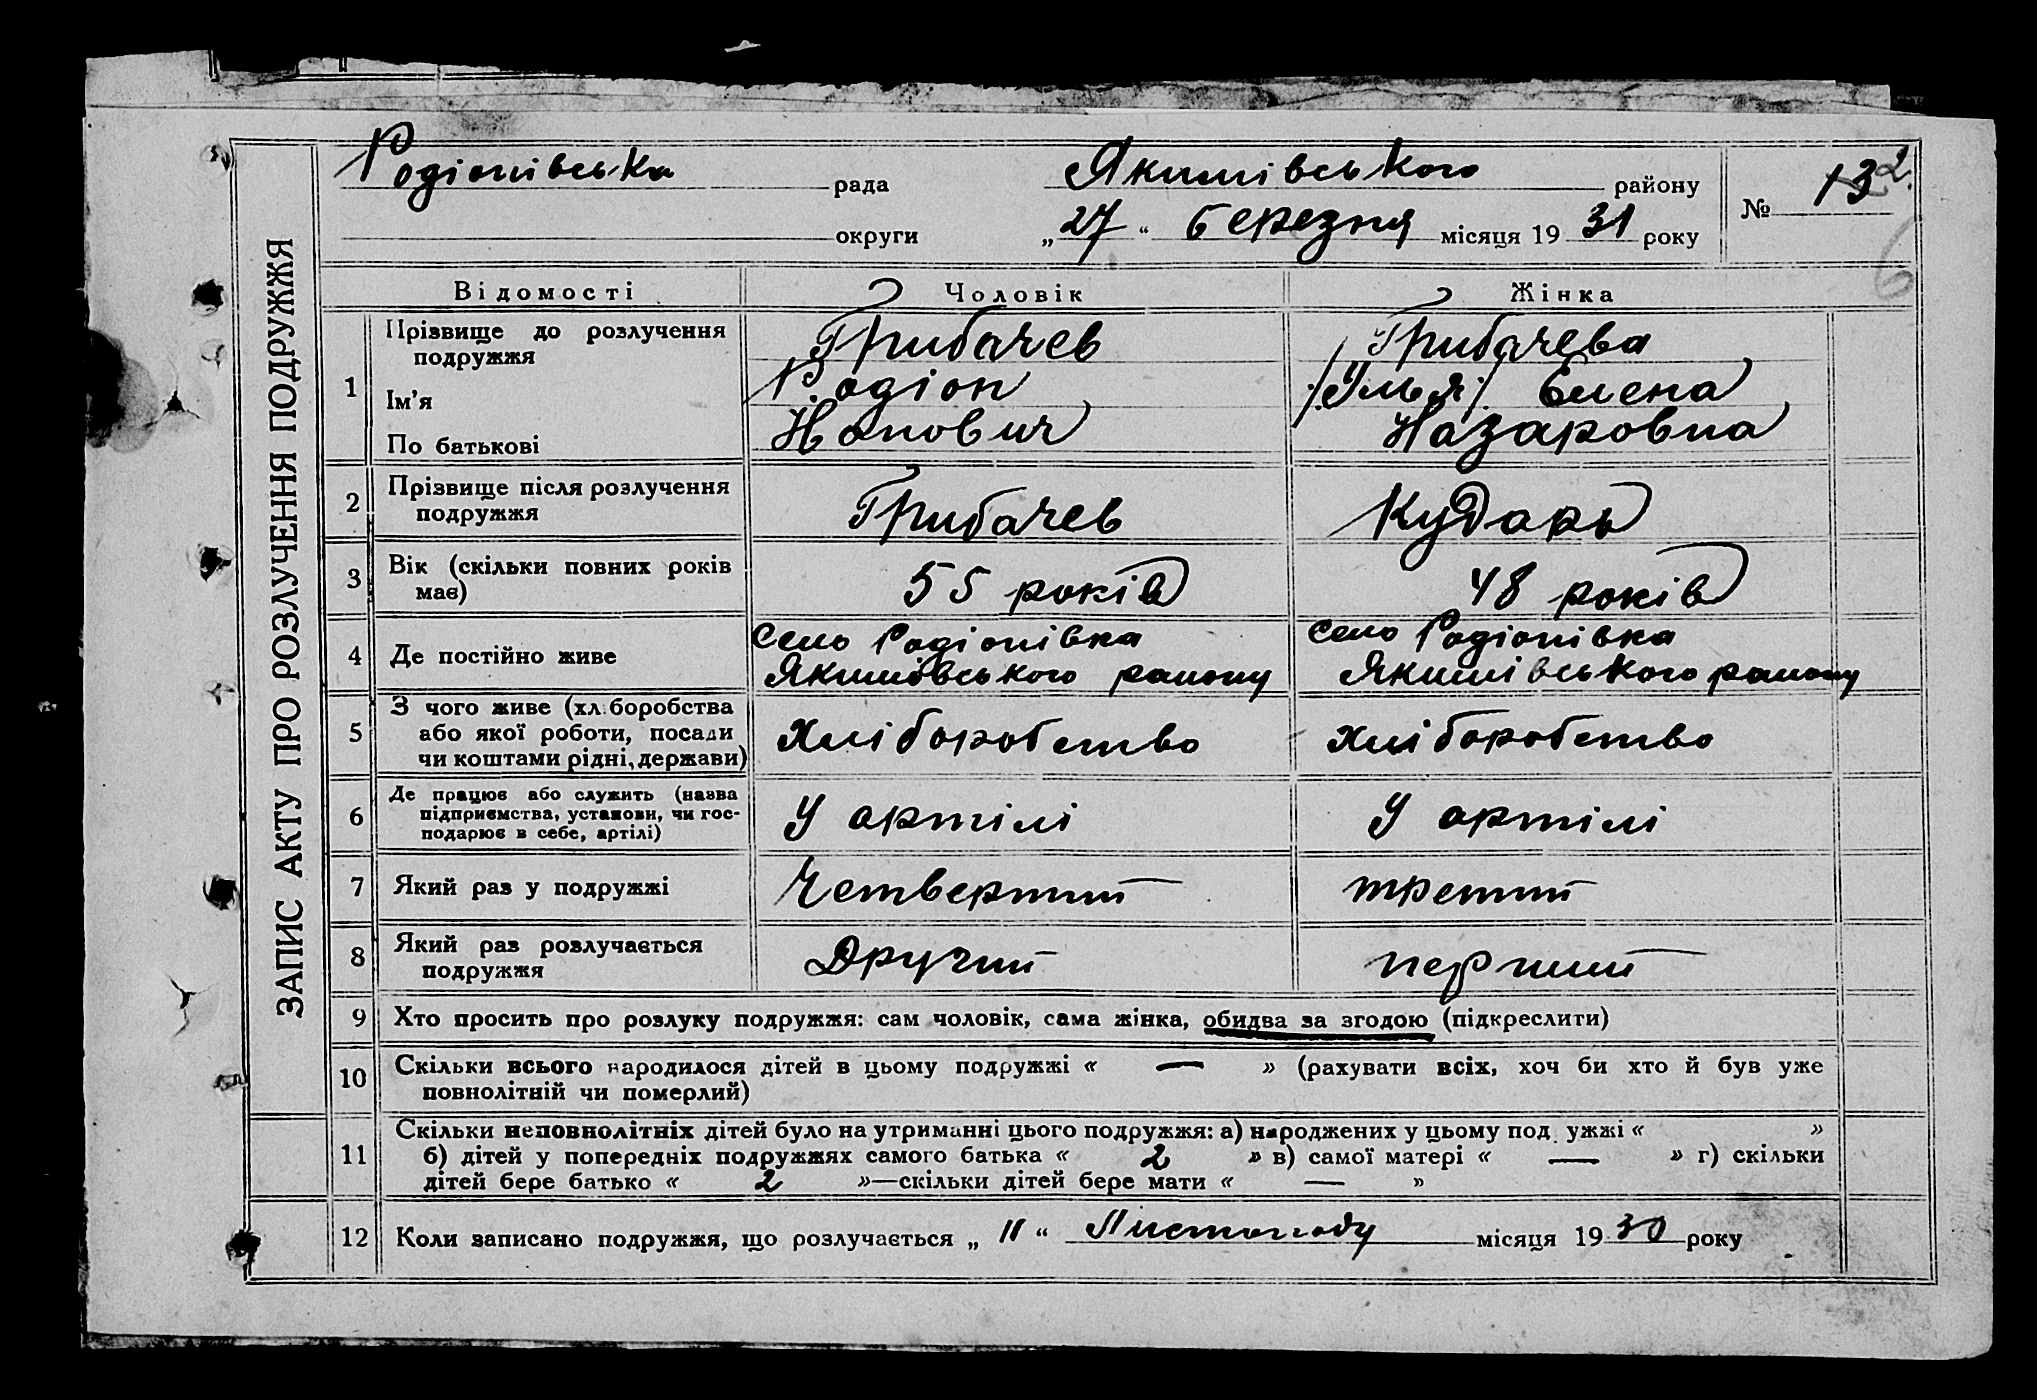 ЗАПИС АКТУ ПРО РОЗЛУЧЕННЯ ПОДРУЖЖЯ
Родіонівська рада Якимівського району № 13
округи „27“ березня місяця 1931 року
Відомості Чоловік Жінка
1 Прізвище до розлучення подружжя Грибачев Грибачева
Ім'я Родіон Елена
По батькові Назаровна
2 Прізвище після розлучення подружжя Грибачев Кударь
3 Вік (скільки повних років має) 55 років 48 років
4 Де постійно живе село Родіонівка село Родіонівка
Якимівського району Якимівського району
5 З чого живе (хліборобства
або якої роботи, посади
чи коштами рідні, держави) хліборобство хліборобство
6 Де працює або служить (назва
підприємства, установи, чи гос-
подарює в себе, артілі) У артілі У артілі
7 Який раз у подружжі Четвертий третий
8 Який раз розлучається
подружжя Другий перший
9 Хто просить про розлуку подружжя: сам чоловік, сама жінка, обидва за згодою (підкреслити)
10 Скільки всього народилося дітей в цьому подружжі « — » (рахувати всіх, хоч би хто й був уже
повнолітній чи померлий)
11 Скільки неповнолітніх дітей було на утриманні цього подружжя: а) народжених у цьому подружжі « »
б) дітей у попередніх подружжях самого батька « 2 » в) самої матері « — » г) скільки
дітей бере батько « 2 »—скільки дітей бере мати « — »
12 Коли записано подружжя, що розлучається „11“ Листопаду місяця 1930 року